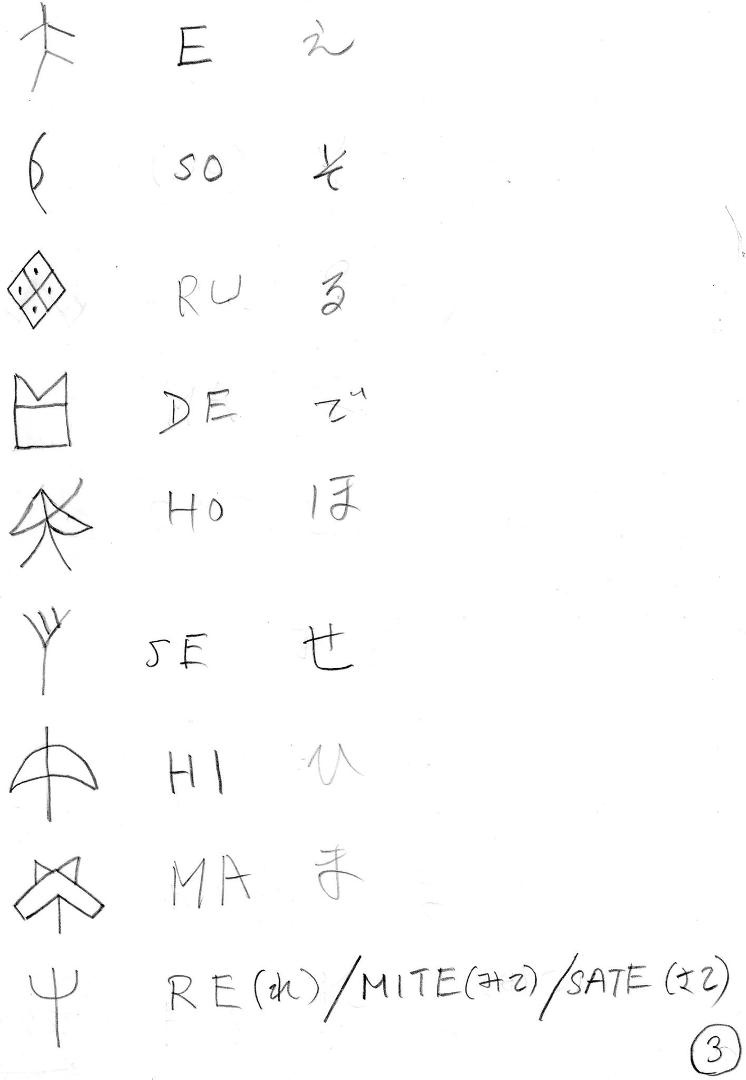 E え
SO そ
RU る
DE で
HO ほ
SE せ
HI ひ
MA ま
RE(れ)/MITE(みて)/SATE(さて)
3